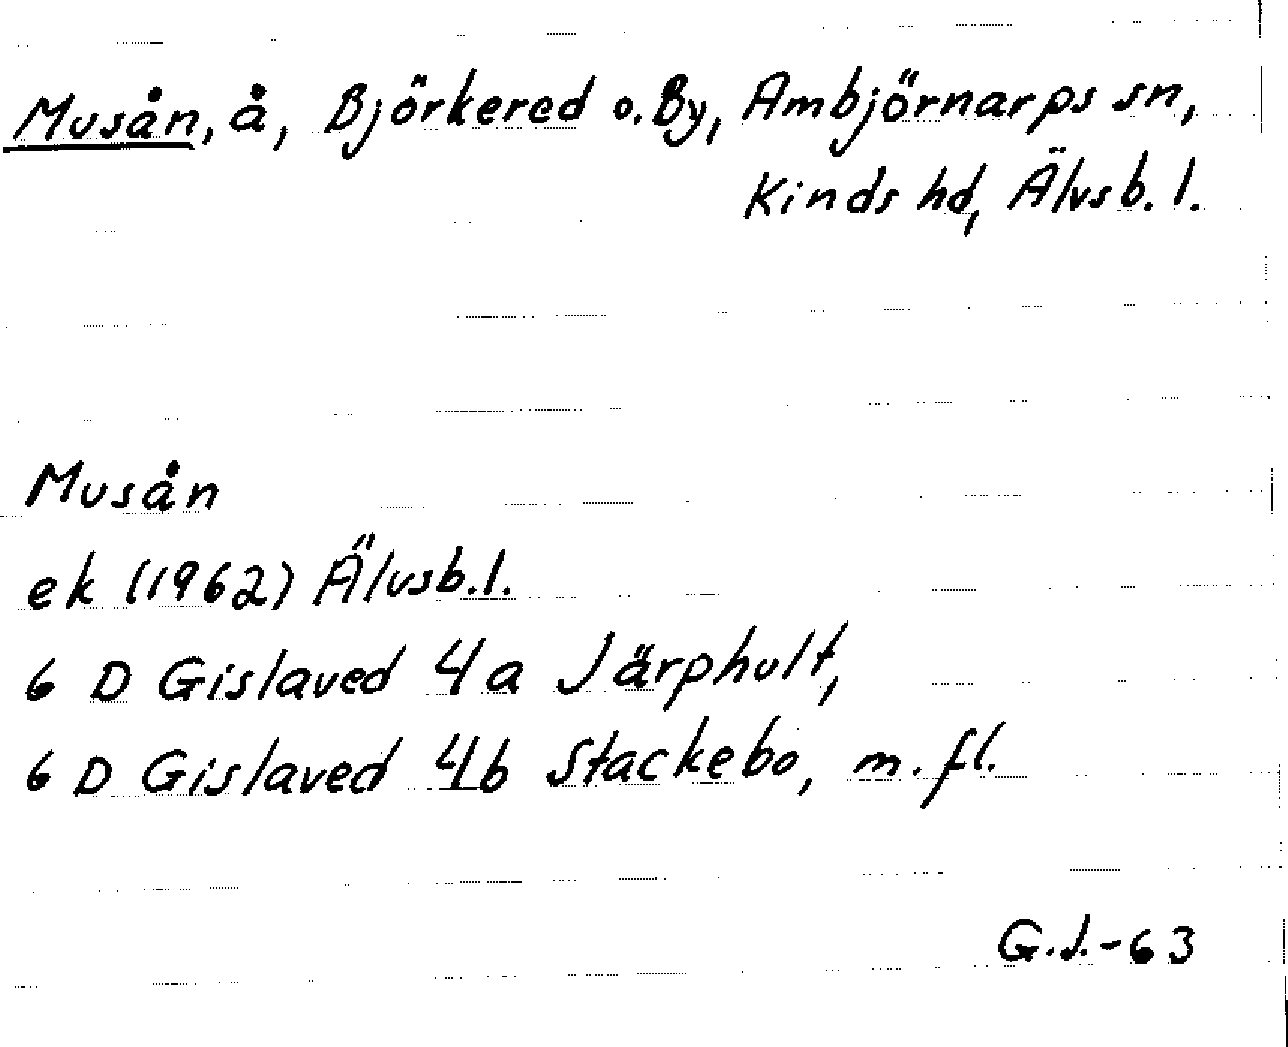 Musån, å, Björkered o. By, Ambjörnarps sn,
Kinds hd, Älvsb. l.
Musån
ek (1962) Älvsb. l.
6 D Gislaved 4a Järphult,
6 D Gislaved 4b Stackebo, m. fl.
G.J.-63